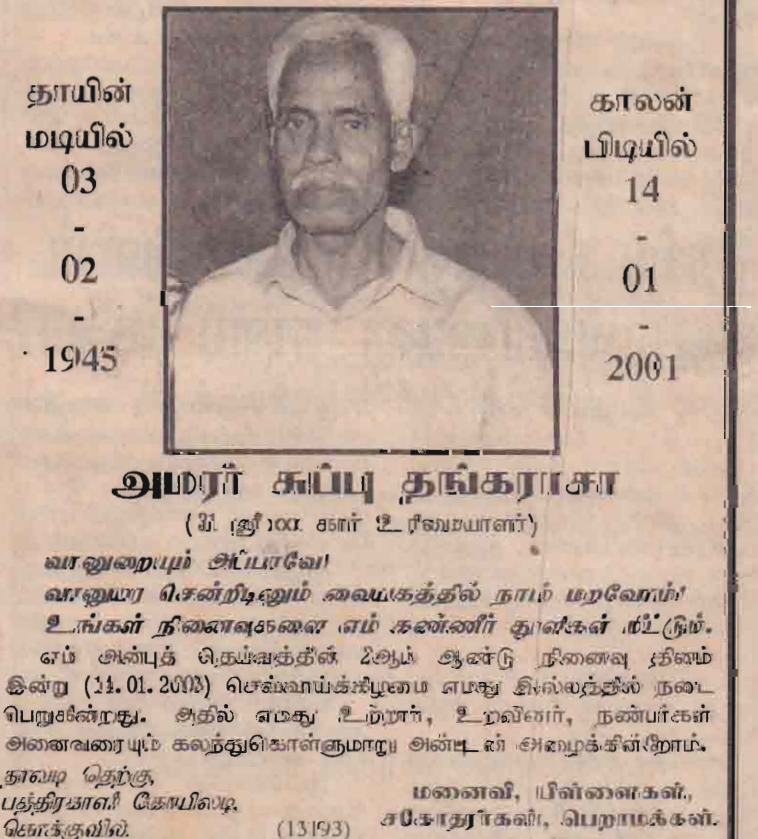 தாயின்
மடியில்
03
-
02
-
1945
காலன்
பிடியில்
14
-
01
-
2001
அமரர் சுப்பு தங்கராசா
உரிமையாளர்)
வானுறையும் அப்பாவே!
வானுயர சென்றிடினும் வையகத்தில் நாம் மறவோம்!
உங்கள் நினைவுகளை எம் கண்ணீர் துளிகள் மீட்டும்.
எம் அன்புத் தெய்வத்தின் 2ஆம் ஆண்டு நினைவு தினம்
இன்று (14.01.2003) செவ்வாய்க்கிழமை எமது இல்லத்தில் நடை
பெறுகின்றது. அதில் எமது உற்றார், உறவினர், நண்பர்கள்
அனைவரையும் கலந்துகொள்ளுமாறு அன்புடன் அழைக்கின்றோம்.
தாவடி தெற்கு,
பத்திரகாளி கோயிலடி,
கொக்குவில்.
(13193)
மனைவி, பிள்ளைகள்,
சகோதரர்கள், பெறாமக்கள்.